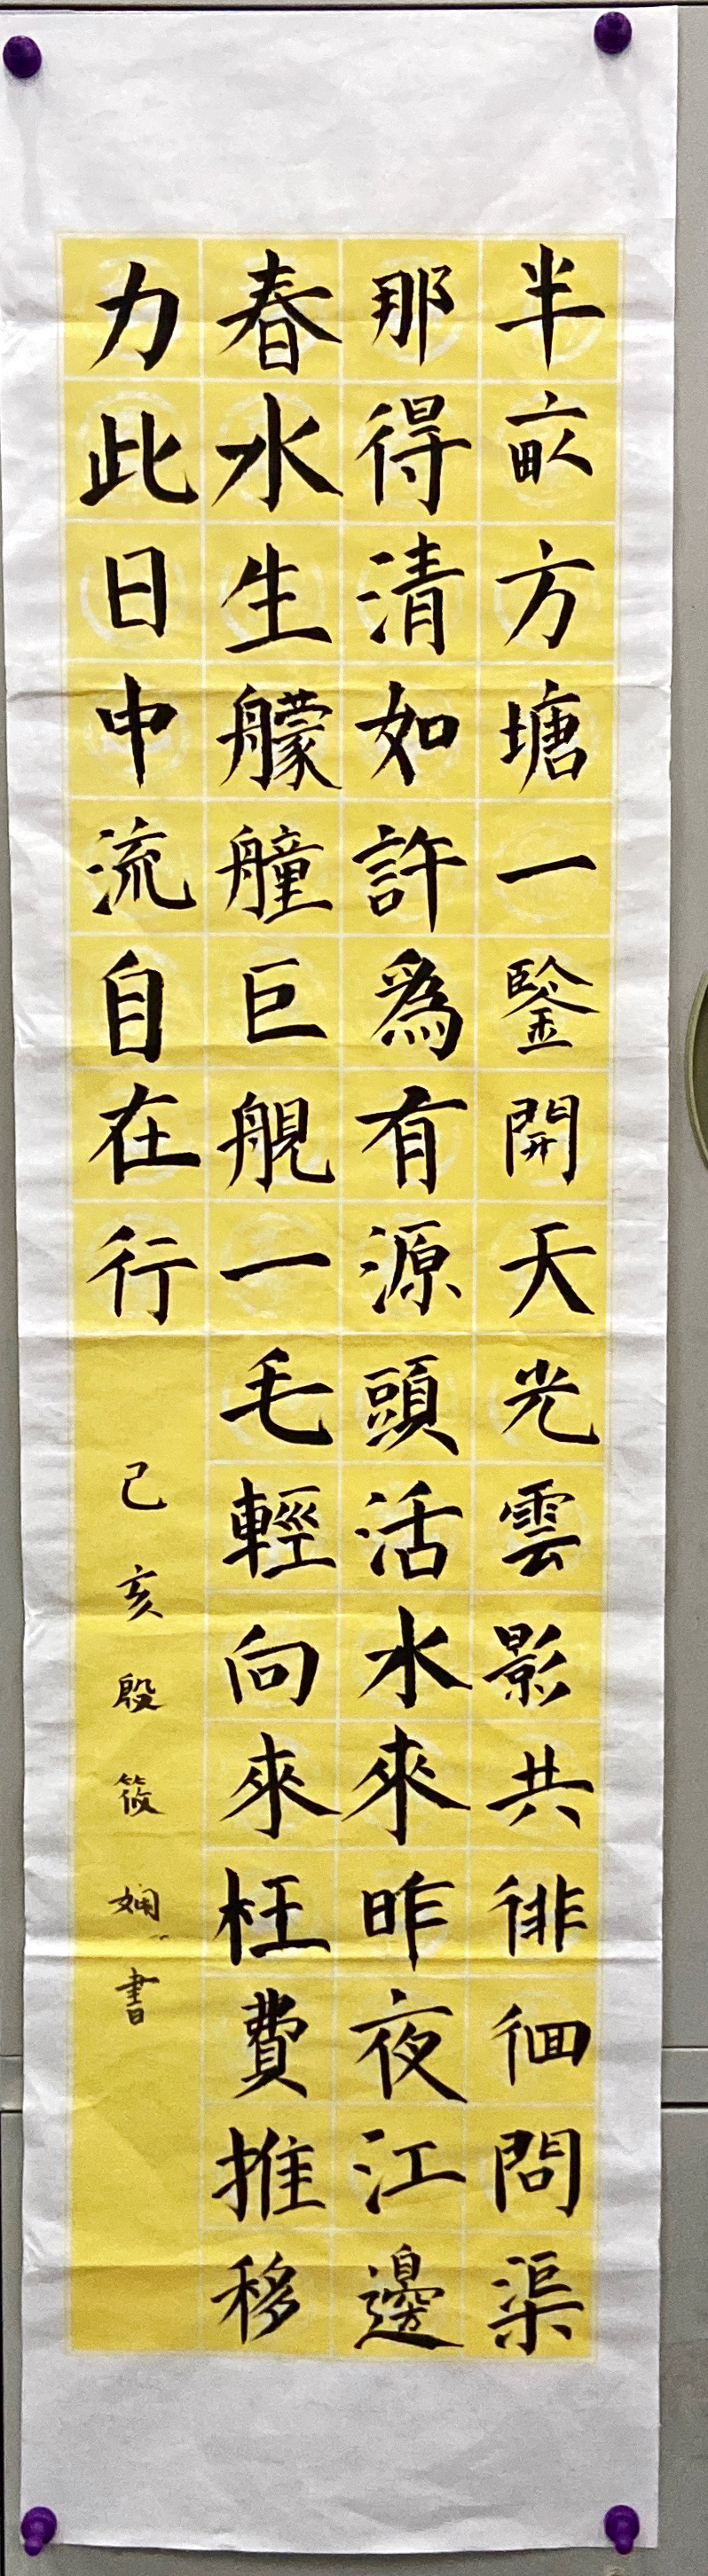 半畝方塘一鑒開天光雲影共徘徊問渠
那得清如許為有源頭活水來昨夜江邊
春水生艨艟巨艦一毛輕向來枉費推移
力此日中流自在行
己亥殷筱嫻書